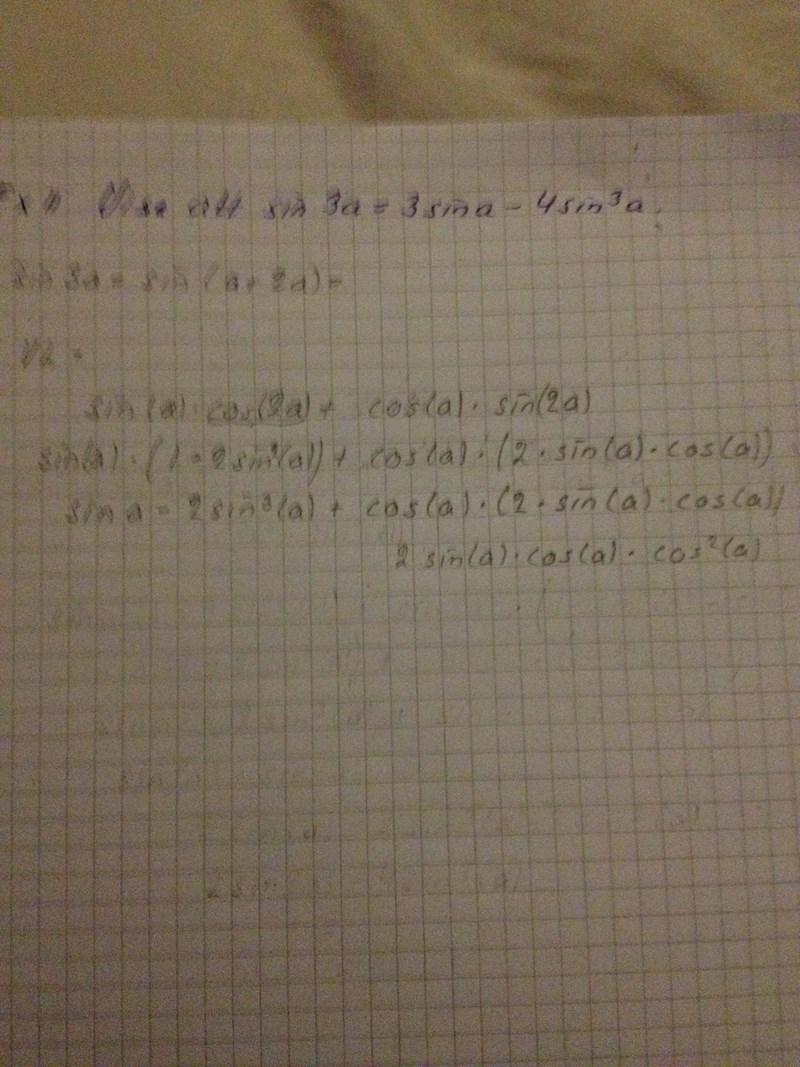 Ex 11 Visa att sin 3a = 3 sin a - 4 sin³a.
sin 3a = sin (a + 2a) =
VL =
sin(a) · cos(2a) + cos(a) · sin(2a)
sin(a) · (1 - 2sin²(a)) + cos(a) · (2 · sin(a) · cos(a))
sin a - 2sin³(a) + cos(a) · (2 · sin(a) · cos(a))
2 sin(a) · cos(a) · cos²(a)